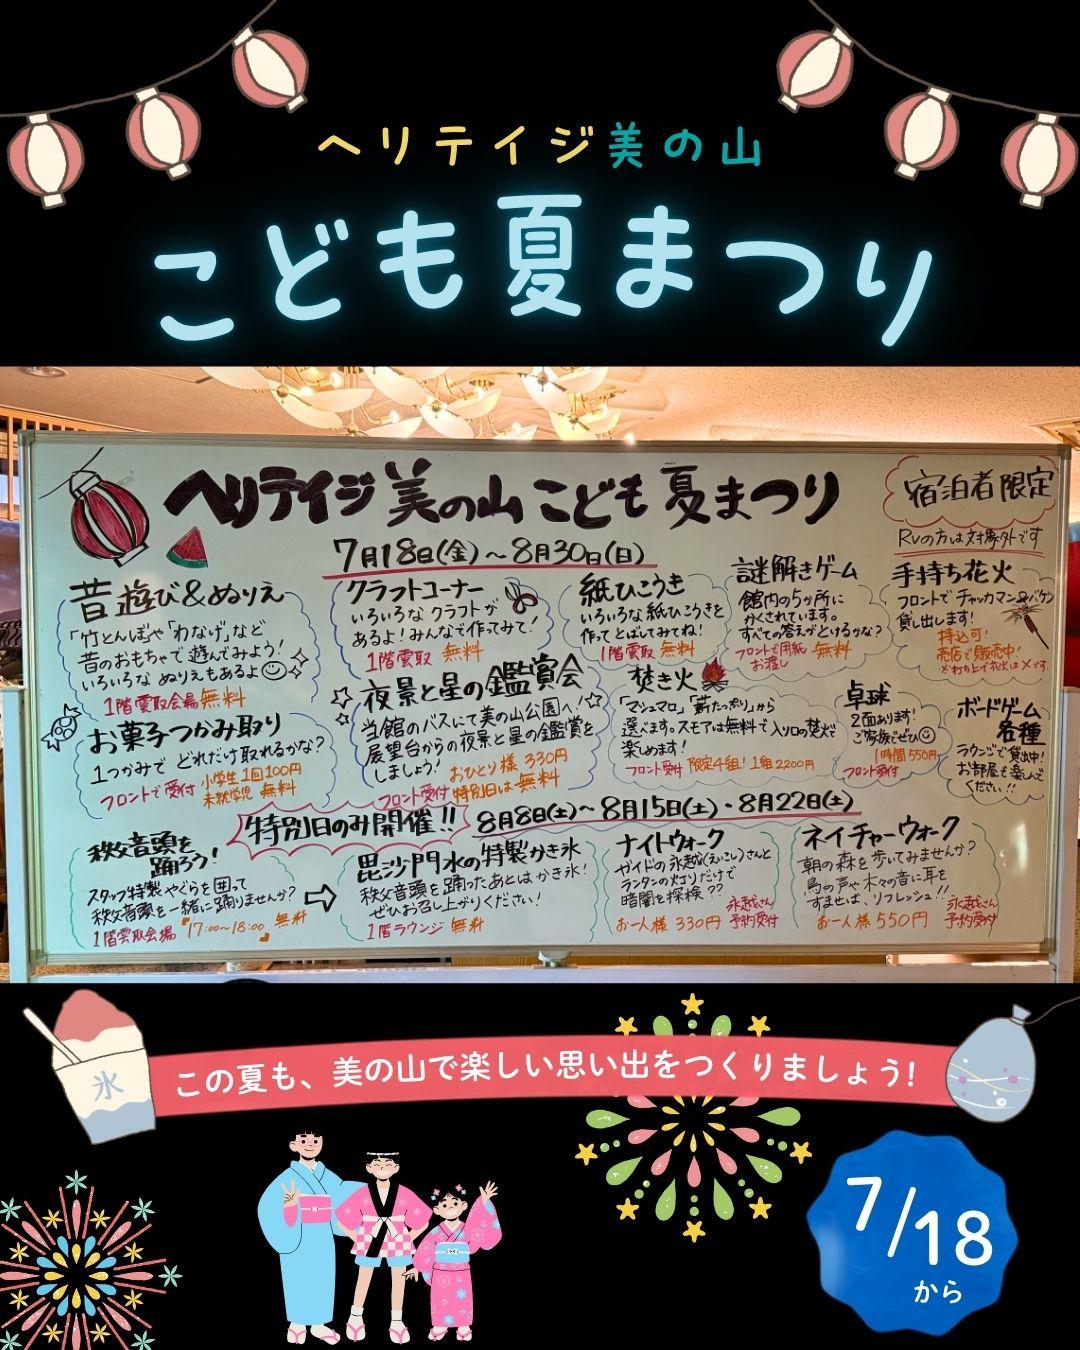 ヘリテイジ美の山
こども夏まつり
ヘリテイジ 美の山 こども 夏まつり
宿泊者限定
RVの方は対象外です
7月18日(金)～8月30日(日)
昔遊び&ぬりえ
「竹とんぼ」や「わなげ」など
昔のおもちゃで遊んでみよう!
いろいろな ぬりえもあるよ
1階雲取会場 無料
クラフトコーナー
いろいろな クラフトが
あるよ!みんなで作ってみて!
1階雲取 無料
紙ひこうき
いろいろな紙ひこうきを
作って とばしてみてね!
1階雲取 無料
謎解きゲーム
館内の5か所に
かくされています。
すべての答えがとけるかな?
フロントで用紙お渡し 無料
手持ち花火
フロントで チャッカマン&バケツ
貸し出します!
持込可!
売店で販売中!
※打ち上げ花火は×です
お菓子つかみ取り
1つかみで どれだけ取れるかな?
フロントで受付 小学生1回100円
未就学児 無料
夜景と星の鑑賞会
当館のバスにて美の山公園へ!
展望台からの夜景と星の鑑賞を
しましょう! おひとり様 330円
フロント受付 特別日は 無料
焚き火
「マシュマロ」「薪たっぷり」から
選べます。スモアは無料で入り口の焚火で
楽しめます!
フロント受付 限定4組! 1組2200円
卓球
2面あります!
ご家族でぜひ
1時間550円
フロント受付
ボードゲーム
各種
ラウンジで貸出中!
お部屋も楽しんで
ください!!
特別日のみ開催!!
8月8日(土)～8月15日(土)・8月22日(土)
秩父音頭を
踊ろう!
スタッフ特製やぐらを囲って
秩父音頭を一緒に踊りませんか?
1階雲取会場 17:00~18:00 無料
毘沙門水の特製かき氷
秩父音頭を踊ったあとは かき氷!
ぜひお召し上がりください!
1階ラウンジ 無料
ナイトウォーク
ガイドの永越(えいこし)さんと
ランタンの灯りだけで
暗闇を探検??
お一人様 330円 永越さん
予約受付
ネイチャーウォーク
朝の森を歩いてみませんか?
鳥の声や木々の音に耳を
すませば、リフレッシュ!!
お一人様 550円 永越さん
予約受付
氷
この夏も、美の山で楽しい思い出をつくりましょう!
7/18
から